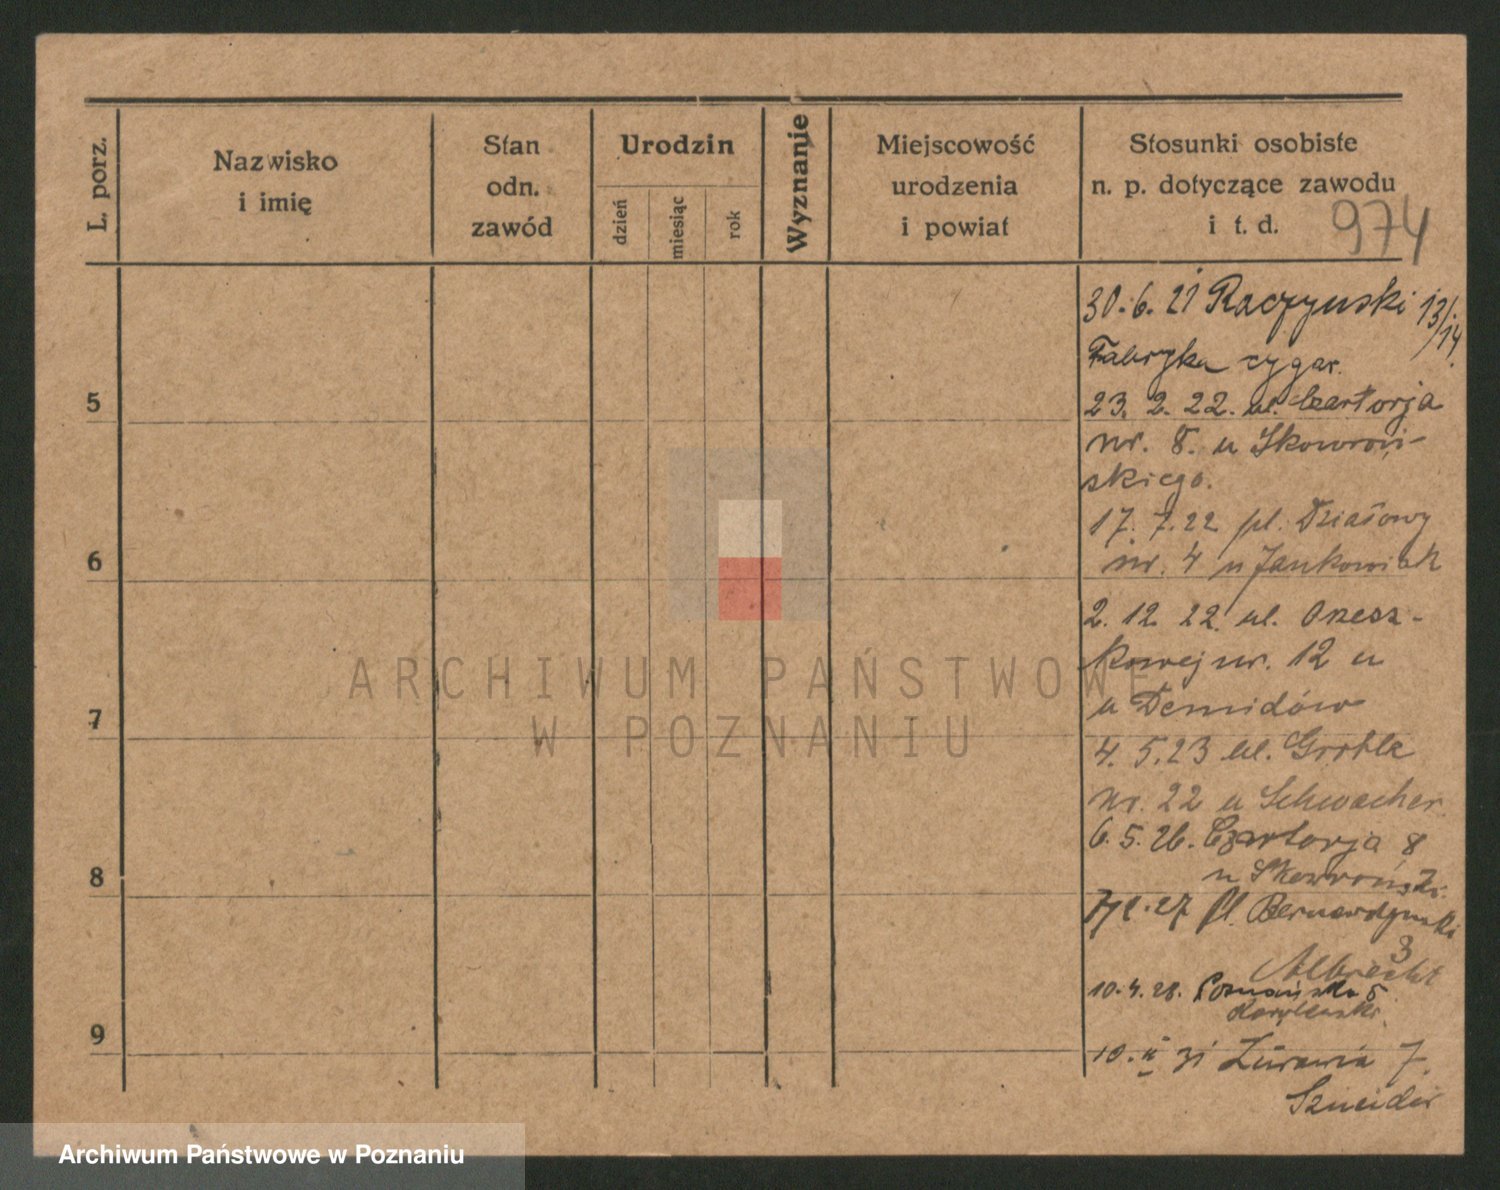 L. porz.
Nazwisko
i imię
Stan
odn.
zawód
Urodzin
dzień
miesiąc
rok
Wyznanie
Miejscowość
urodzenia
i powiat
Stosunki osobiste
n. p. dotyczące zawodu
i t. d.
974
30.6.21 Raczyński 13/14
Fabryka cygar.
5
23. 2. 22. ul. Czartorja
nr. 8. u Skowroń-
skiego.
17. 7. 22 pl. Działowy
6
nr. 4 u Jankowiak
2. 12. 22. ul. Orzesz-
kowej nr. 12 u
u Demidów
7
4. 5. 23 ul. Grobla
nr. 22 u Schwacher
6. 5. 26. Czartorja 8
8
u Skowrońsk.
27 Pl. Bernardyński
3
Albrecht
10.4.28. Poznańska 5
9
10. II 31 Żurawia 7.
Szneider
ARCHIWUM PAŃSTWOWE
W POZNANIU
Archiwum Państwowe w Poznaniu